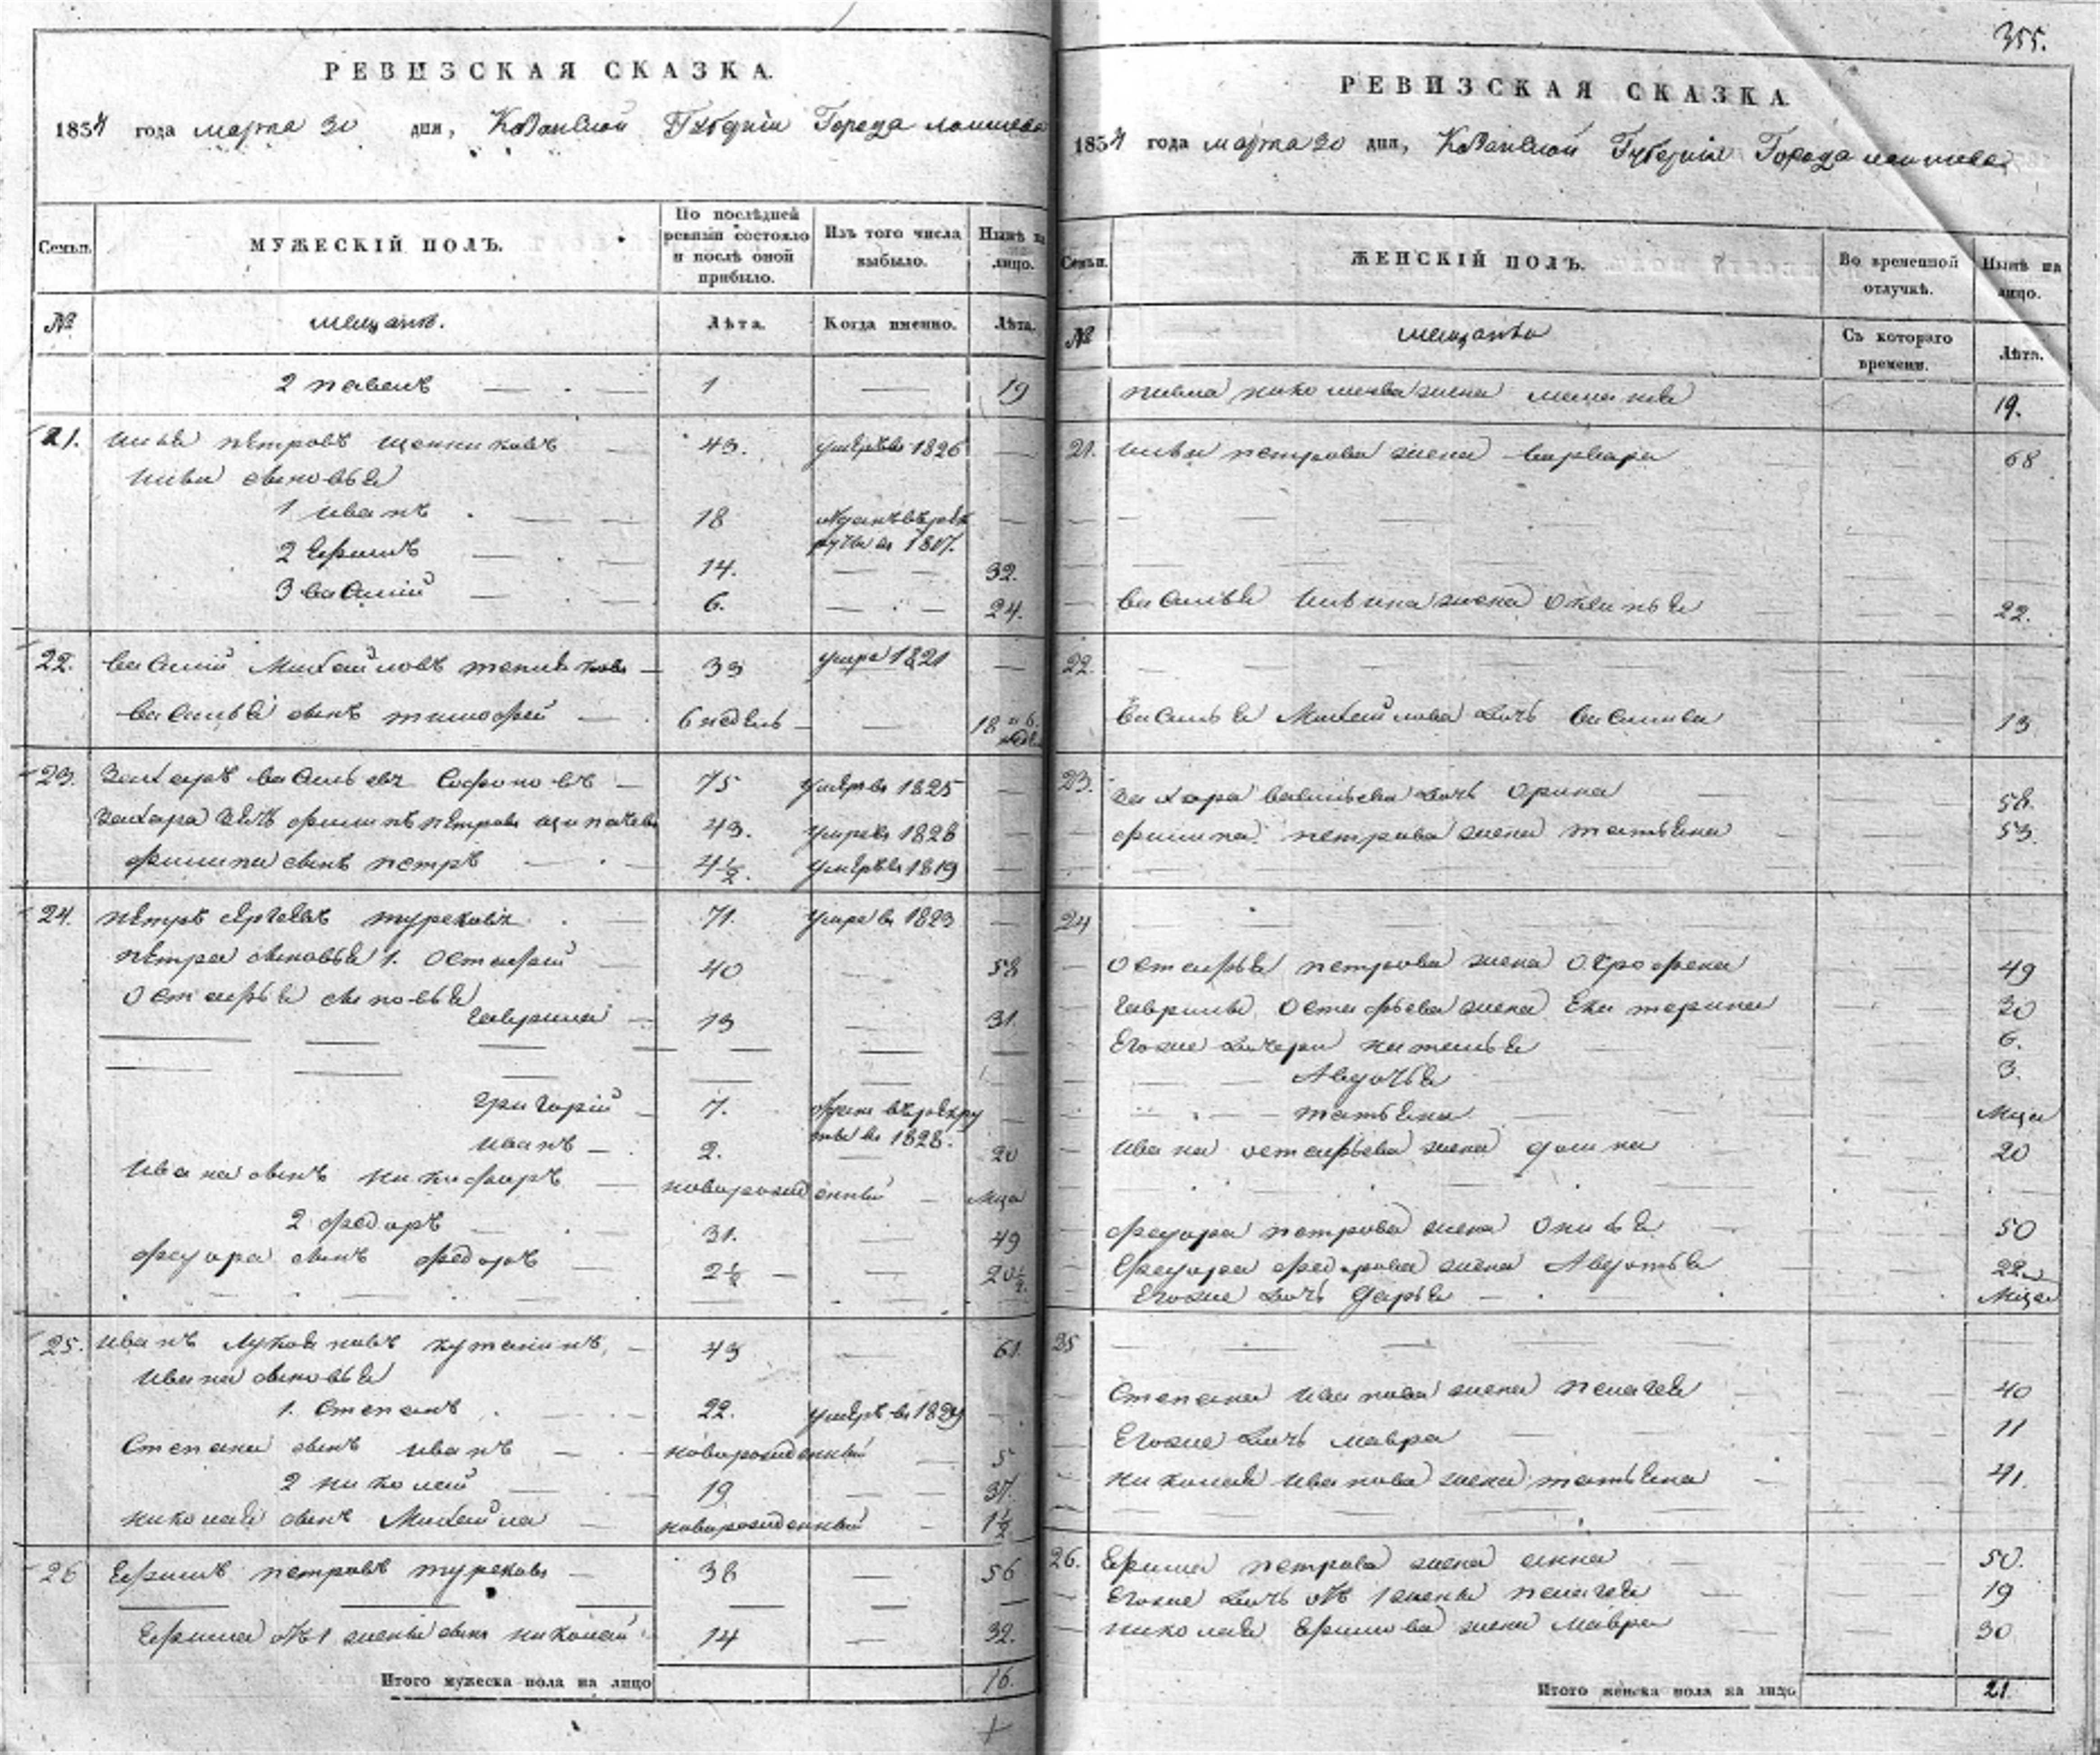 355.
РЕВИЗСКАЯ СКАЗКА.
1834 года марта 30 дня, Казанской Губерніи Города Лаишева
Семьи.
МУЖЕСКІЙ ПОЛЪ.
По послѣдней ревизіи состояло и послѣ оной прибыло.
Изъ того числа выбыло.
Нынѣ на лицо.
№
мещане.
Лѣта.
Когда именно.
Лѣта.
2 павелъ 1 19
21. илья петровъ 43. умеръ в 1826
ильи сыновья
1 иванъ 18 отданъ въ рек
руты в
2 Ефимъ 14. 32.
3 василій 6. 24.
22. василій Михайловъ 33 умре 1821
василья сынъ тимофей 6 недель 18 и 6. недел
23. Захаръ васильевъ Сафоновъ 75 умре в 1825
Захара зять филипъ петровъ 43. умре в 1826
филипа сынъ петръ 4½. умеръ в 1819
24. петръ сергеевъ турековъ 71. умре в 1823
петра сыновья 1. Остафей 40 58
Остафья сыновья
гаврила 13 31
григорій 7. отдан въ рекру
ты в 1828.
иванъ 2. 20
ивана сынъ никифоръ новорожденный мца
2 федоръ 31. 49
федора сынъ федоръ 2½ 20½.
25. иванъ Лукояновъ 43 61.
ивана сыновья
1. Степанъ 22. умеръ в 1829
Степана сынъ иванъ новорожденный 5
2 николай 19 37.
николая сынъ Михайла новорожденный 1½
26 Ефимъ петровъ турековъ 38 56
Ефима от 1 жены сынъ николай 14 32.
Итого мужеска пола на лицо 16.
РЕВИЗСКАЯ СКАЗКА
1834 года марта 30 дня, Казанской Губерніи Города Лаишева
Семьи.
ЖЕНСКІЙ ПОЛЪ.
Во временной отлучкѣ.
Нынѣ на лицо.
№
мещанки
Съ котораго времени.
Лѣта.
павла николаева жена 19.
21. ильи петрова жена варвара 68
василья ильина жена 22.
22.
василья Михайлова дочь 13
23. захара васильева дочь Орина 58.
филипа петрова жена татьяна 53.
24
Остафья петрова жена Огрофена 49
гаврилы Остафьева жена Екатерина 30
Его же дочери наталья 6.
Авдотья 3.
татьяна мца
ивана остафьева жена 20
федора петрова жена 50
федора федорова жена Авдотья 22
Его же дочь Дарья мца
25
Степана иванова жена пелагея 40
Его же дочь мавра 11
николая иванова жена татьяна 41.
26. Ефима петрова жена анна 50.
Его же дочь от 1 жены пелагея 19
николая Ефимова жена мавра 30
Итого женска пола на лицо 21.